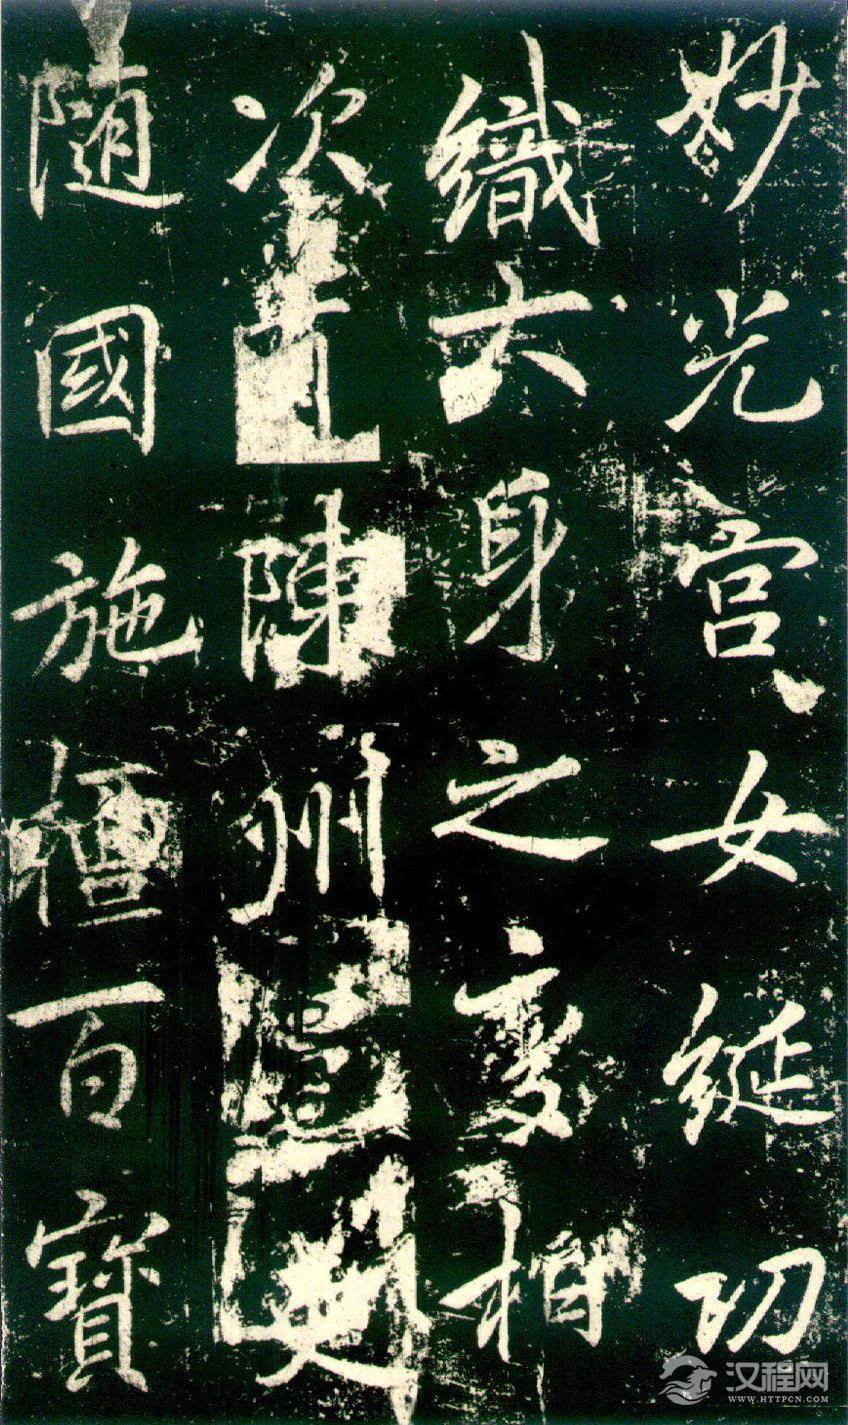 妙光宮女綖功
織大身之變相
次陳州史
隨國施檀百寶
汉程网
WWW.HTTPCN.COM